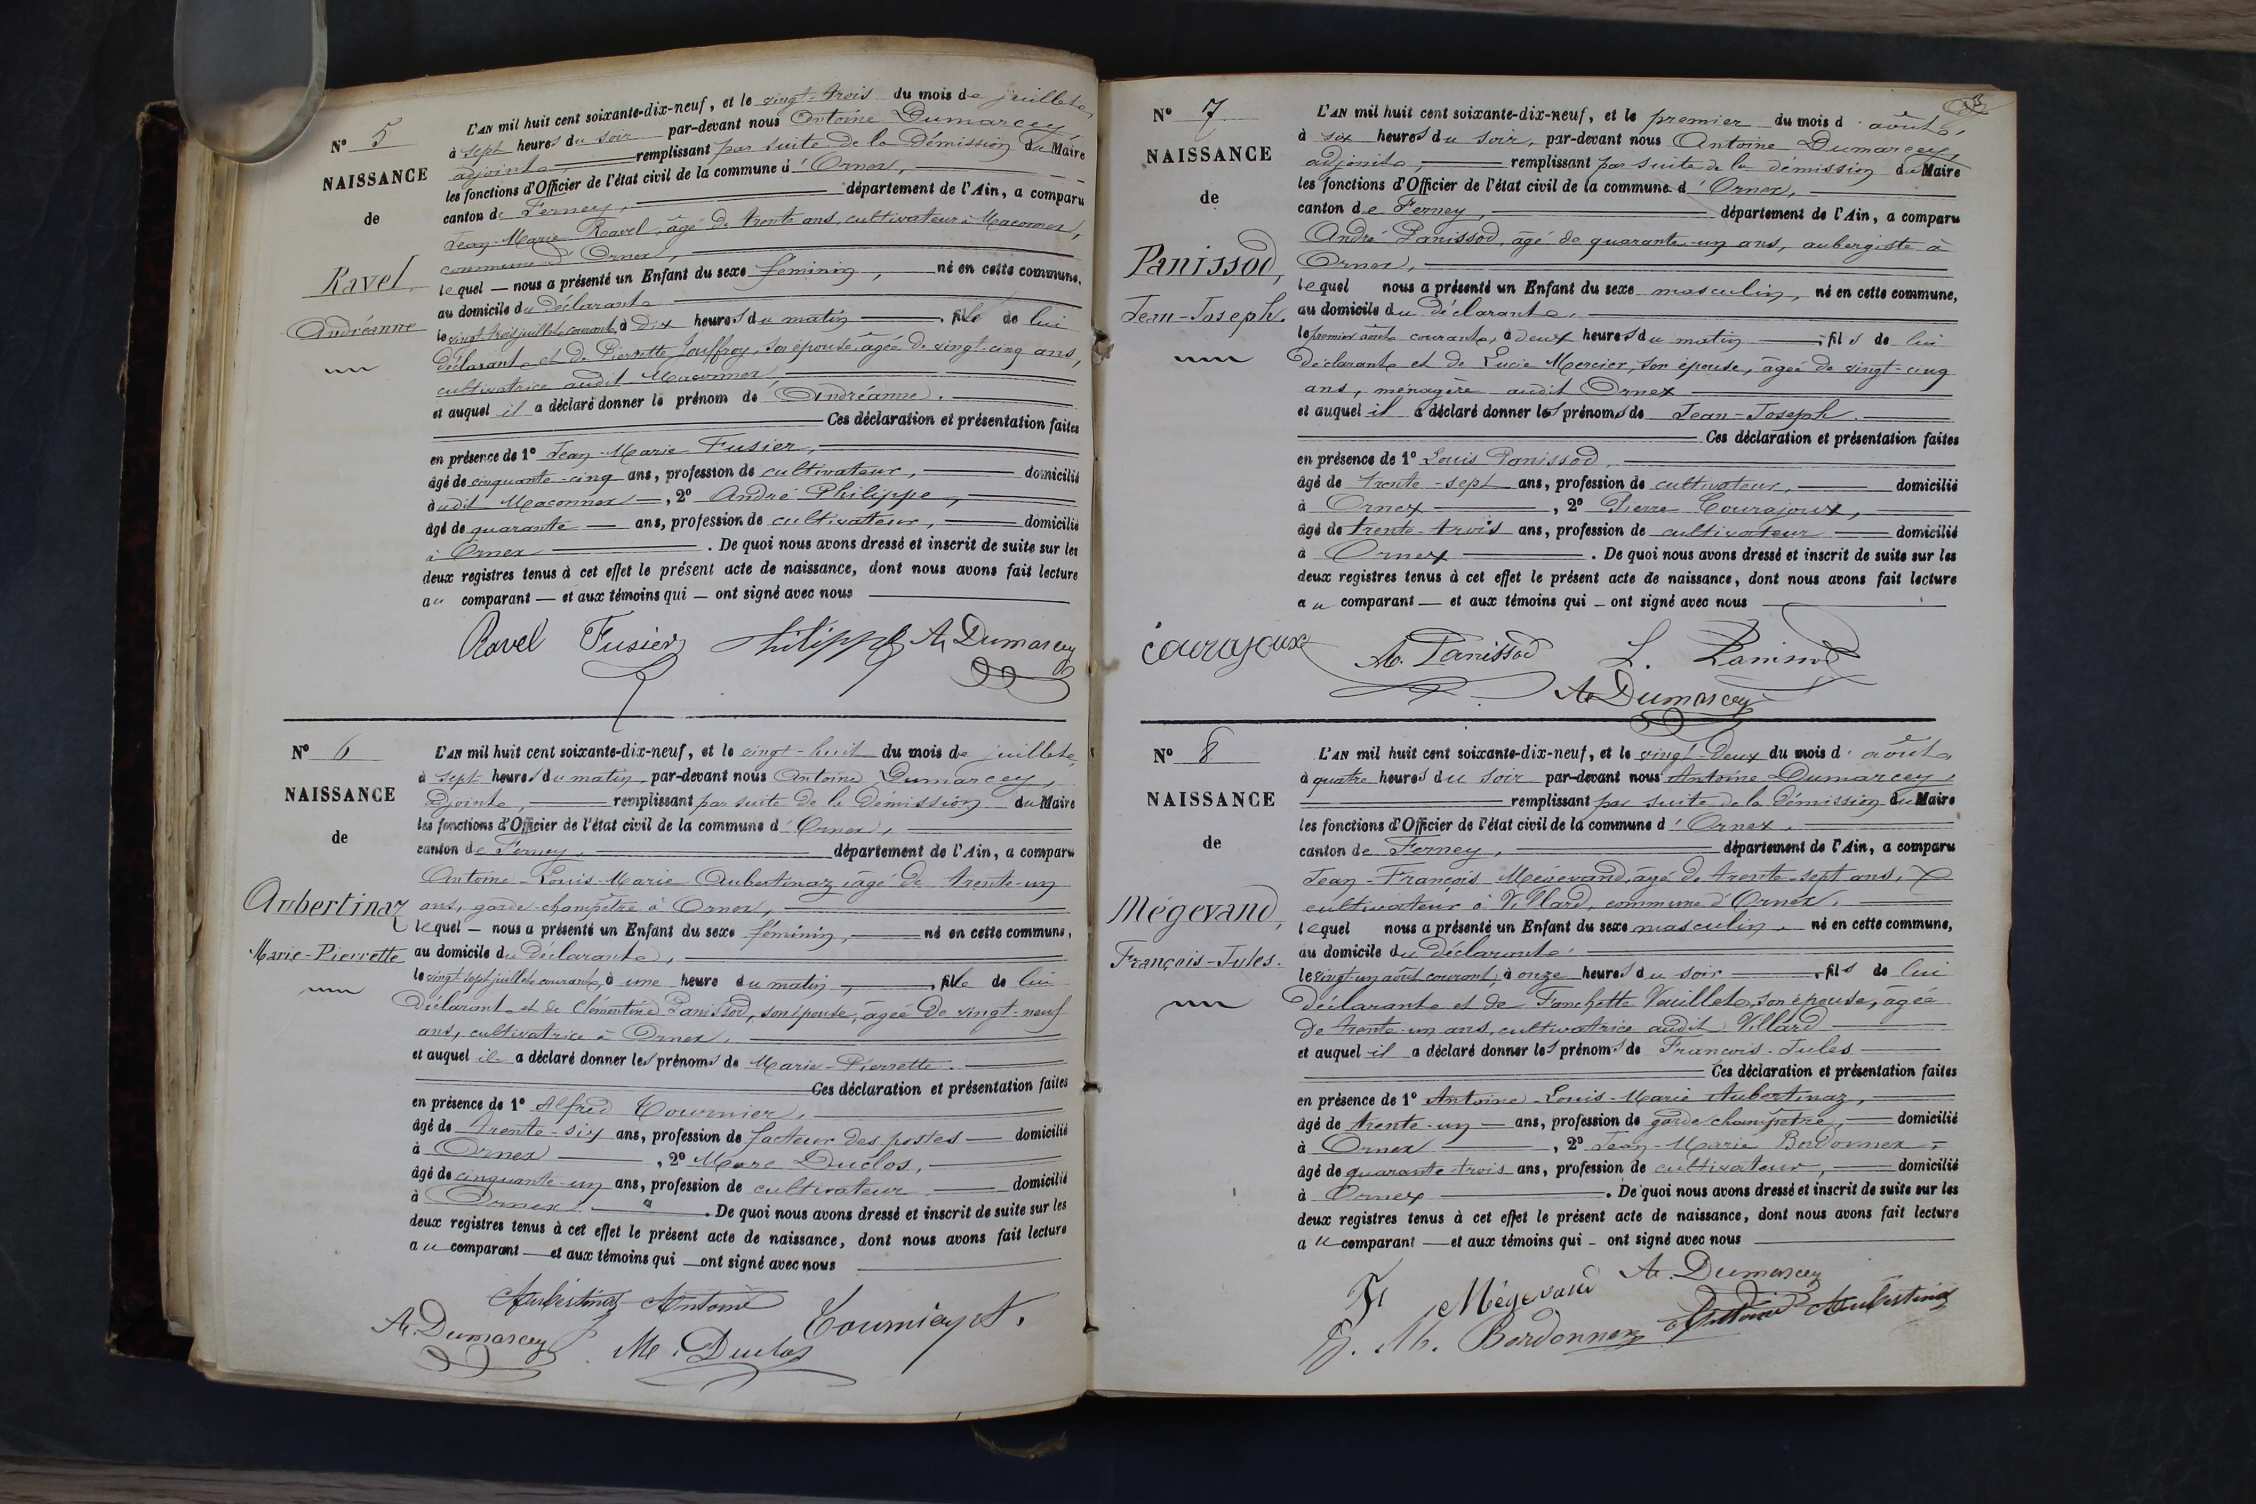 N° 5
NAISSANCE
de
Ravel
Andréanne
L'AN mil huit cent soixante-dix-neuf, et le vingt-trois du mois de juillet,
à sept heures du soir par-devant nous Antoine Dumarcey,
adjoint, remplissant par suite de la démission du Maire
les fonctions d'Officier de l'état civil de la commune d'Ornex,
canton de Ferney, département de l'Ain, a comparu
Jean-Marie Ravel, âgé de trente ans, cultivateur à Maconnex,
commune d'Ornex,
lequel — nous a présenté un Enfant du sexe féminin, né en cette commune,
au domicile du déclarant
le vingt-trois juillet courant, à dix heures du matin, fille de lui
déclarant et de Pierrette Jouffroy, son épouse, âgée de vingt-cinq ans,
cultivatrice audit Maconnex
et auquel il a déclaré donner le prénom de Andréanne.
Ces déclaration et présentation faites
en présence de 1° Jean-Marie Fusier,
âgé de cinquante-cinq ans, profession de cultivateur, domicilié
audit Maconnex, 2° André Philippe,
âgé de quarante ans, profession de cultivateur, domicilié
à Ornex. De quoi nous avons dressé et inscrit de suite sur les
deux registres tenus à cet effet le présent acte de naissance, dont nous avons fait lecture
au comparant — et aux témoins qui — ont signé avec nous
Ravel Fusier Philippe A. Dumarcey
N° 6
NAISSANCE
de
Aubertinaz
Marie-Pierrette
L'AN mil huit cent soixante-dix-neuf, et le vingt-huit du mois de juillet,
à sept heures du matin, par-devant nous Antoine Dumarcey,
adjoint, remplissant par suite de la démission du Maire
les fonctions d'Officier de l'état civil de la commune d'Ornex,
canton de Ferney, département de l'Ain, a comparu
Antoine-Louis-Marie Aubertinaz, âgé de trente-un
ans, garde-champêtre à Ornex,
lequel — nous a présenté un Enfant du sexe féminin, né en cette commune,
au domicile du déclarant,
le vingt-sept juillet courant, à une heure du matin, fille de lui
déclarant et de Clémentine Panissod, son épouse, âgée de vingt-neuf
ans, cultivatrice à Ornex,
et auquel il a déclaré donner les prénoms de Marie-Pierrette.
Ces déclaration et présentation faites
en présence de 1° Alfred Tournier,
âgé de trente-six ans, profession de facteur des postes domicilié
à Ornex, 2° Marc Duclos,
âgé de cinquante-un ans, profession de cultivateur domicilié
à Ornex. De quoi nous avons dressé et inscrit de suite sur les
deux registres tenus à cet effet le présent acte de naissance, dont nous avons fait lecture
au comparant — et aux témoins qui — ont signé avec nous
Aubertinaz Antoine
A. Dumarcey M. Duclos Tournier A.
3
N° 7
NAISSANCE
de
Panissod,
Jean-Joseph.
L'AN mil huit cent soixante-dix-neuf, et le premier du mois d'août,
à six heures du soir, par-devant nous Antoine Dumarcey,
adjoint, remplissant par suite de la démission du Maire
les fonctions d'Officier de l'état civil de la commune d'Ornex,
canton de Ferney, département de l'Ain, a comparu
André Panissod, âgé de quarante-un ans, aubergiste à
Ornex,
lequel nous a présenté un Enfant du sexe masculin, né en cette commune,
au domicile du déclarant,
le premier août courant, à deux heures du matin, fils de lui
déclarant et de Lucie Mercier, son épouse, âgée de vingt-cinq
ans, ménagère audit Ornex
et auquel il a déclaré donner les prénoms de Jean-Joseph.
Ces déclaration et présentation faites
en présence de 1° Louis Panissod,
âgé de trente-sept ans, profession de cultivateur, domicilié
à Ornex, 2° Pierre Courajoux,
âgé de trente-trois ans, profession de cultivateur domicilié
à Ornex. De quoi nous avons dressé et inscrit de suite sur les
deux registres tenus à cet effet le présent acte de naissance, dont nous avons fait lecture
au comparant — et aux témoins qui — ont signé avec nous
Courajoux A. Panissod L. Panissod
A. Dumarcey
N° 8
NAISSANCE
de
Mégevand,
François-Jules.
L'AN mil huit cent soixante-dix-neuf, et le vingt-deux du mois d'août,
à quatre heures du soir par-devant nous Antoine Dumarcey,
remplissant par suite de la démission du Maire
les fonctions d'Officier de l'état civil de la commune d'Ornex,
canton de Ferney, département de l'Ain, a comparu
Jean-François Mégevand, âgé de trente-sept ans,
cultivateur à Villard, commune d'Ornex,
lequel nous a présenté un Enfant du sexe masculin, né en cette commune,
au domicile du déclarant,
le vingt-un août courant, à onze heures du soir, fils de lui
déclarant et de Fanchette Vuillet, son épouse, âgée
de trente-un ans, cultivatrice audit Villard
et auquel il a déclaré donner les prénoms de François-Jules
Ces déclaration et présentation faites
en présence de 1° Antoine-Louis-Marie Aubertinaz,
âgé de trente-un ans, profession de garde champêtre, domicilié
à Ornex, 2° Jean-Marie Bordonnex,
âgé de quarante-trois ans, profession de cultivateur, domicilié
à Ornex. De quoi nous avons dressé et inscrit de suite sur les
deux registres tenus à cet effet le présent acte de naissance, dont nous avons fait lecture
au comparant — et aux témoins qui — ont signé avec nous
Mégevand A. Dumarcey
J. M. Bordonnex Antoine Aubertinaz